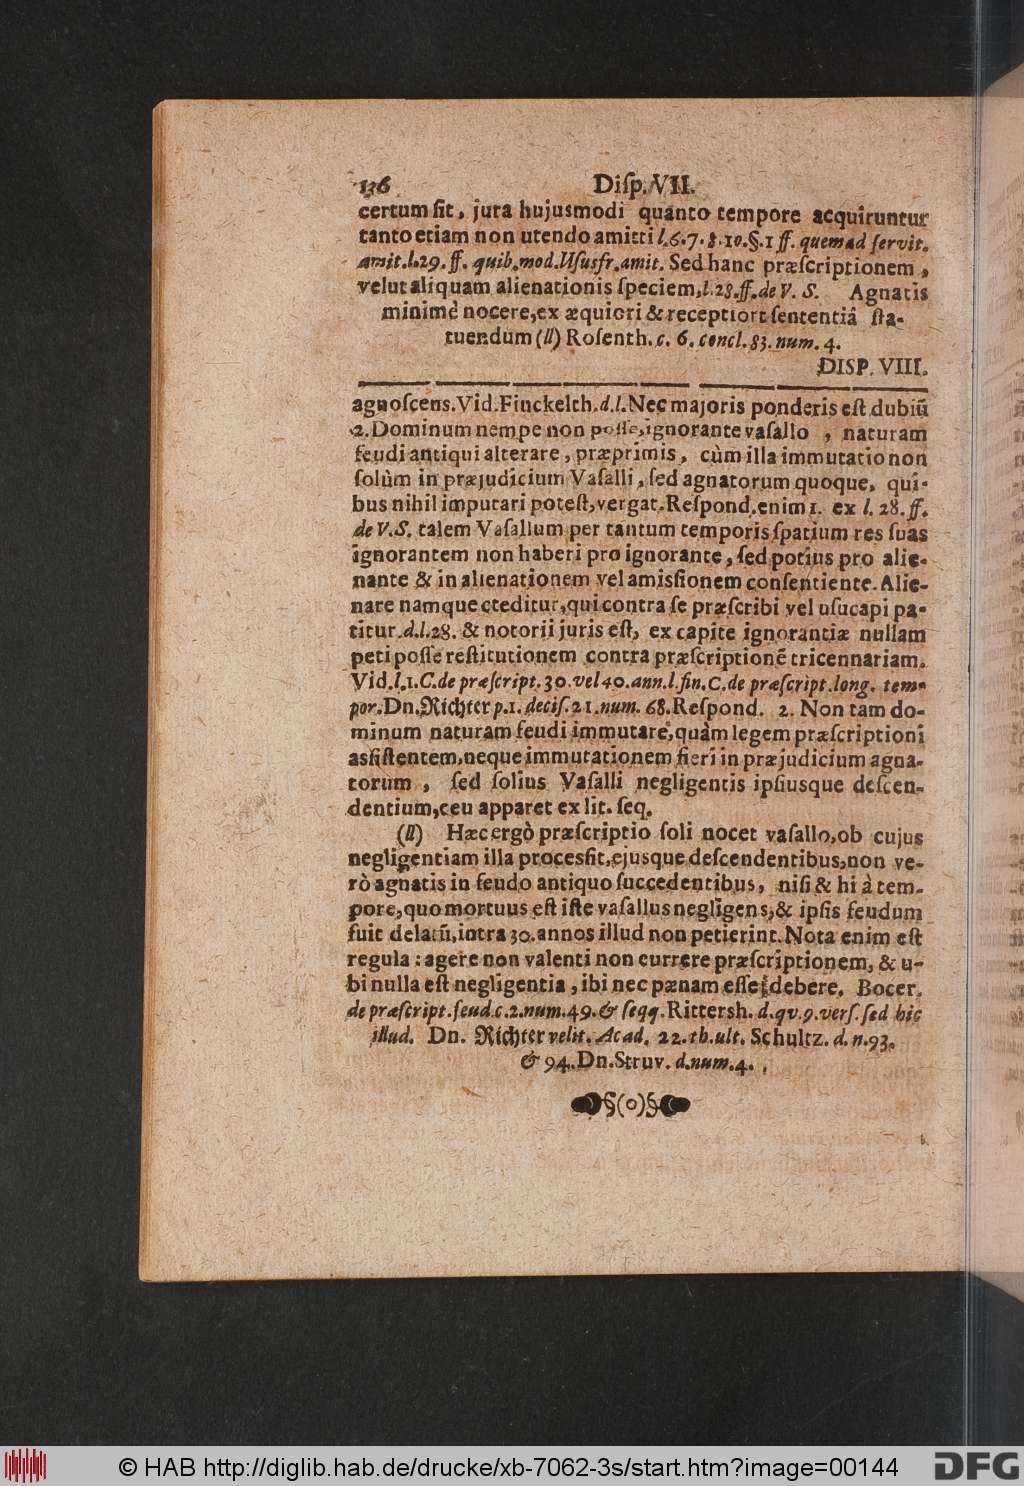 136 Diſp. VII.
certum ſit, jura hujusmodi quanto tempore acquiruntur
tanto etiam non utendo amitti l. 6. 7. 8. 10. §. 1 ff. quemad ſervit.
amit. l. 29. ff. quib. mod. Uſusfr. amit. Sed hanc præſcriptionem,
velut aliquam alienationis ſpeciem, l. 28. ff. de V. S. Agnatis
minimè nocere, ex æquiori & receptiori ſententiâ ſta-
tuendum (ll) Roſenth. c. 6. concl. 83. num. 4.
DISP. VIII.
agnoſcens. Vid. Finckelth. d. l. Nec majoris ponderis eſt dubiũ
2. Dominum nempe non poſſe, ignorante vaſallo, naturam
feudi antiqui alterare, præprimis, cùm illa immutatio non
ſolùm in præjudicium Vaſalli, ſed agnatorum quoque, qui-
bus nihil imputari poteſt, vergat. Reſpond. enim 1. ex l. 28. ff.
de V. S. talem Vaſallum per tantum temporis ſpatium res ſuas
ignorantem non haberi pro ignorante, ſed potius pro alie-
nante & in alienationem vel amisſionem conſentiente. Alie-
nare namque creditur, qui contra ſe præſcribi vel uſucapi pa-
titur. d. l. 28. & notorii juris eſt, ex capite ignorantiæ nullam
peti poſſe reſtitutionem contra præſcriptionẽ tricennariam.
Vid. l. 1. C. de præſcript. 30. vel 40. ann. l. fin. C. de præſcript. long. tem-
por. Dn. Richter p. 1. deciſ. 21. num. 68. Reſpond. 2. Non tam do-
minum naturam feudi immutare, quàm legem præſcriptioni
asſiſtentem, neque immutationem fieri in præjudicium agna-
torum, ſed ſolius Vaſalli negligentis ipſiusque deſcen-
dentium, ceu apparet ex lit. ſeq.
(ll) Hæc ergò præſcriptio ſoli nocet vaſallo, ob cujus
negligentiam illa procesſit, ejusque deſcendentibus, non ve-
rò agnatis in feudo antiquo ſuccedentibus, niſi & hi à tem-
pore, quo mortuus eſt iſte vaſallus negligens, & ipſis feudum
fuit delatũ, intra 30. annos illud non petierint. Nota enim eſt
regula: agere non valenti non currere præſcriptionem, & u-
bi nulla eſt negligentia, ibi nec pænam eſſe debere. Bocer.
de præſcript. feud. c. 2. num. 49. & ſeqq. Rittersh. d. qv. 9. verſ. ſed hic
illud. Dn. Richter velit. Acad. 22. th. ult. Schultz. d. n. 93.
& 94. Dn. Struv. d. num. 4.
§(o)§
© HAB http://diglib.hab.de/drucke/xb-7062-3s/start.htm?image=00144
DFG